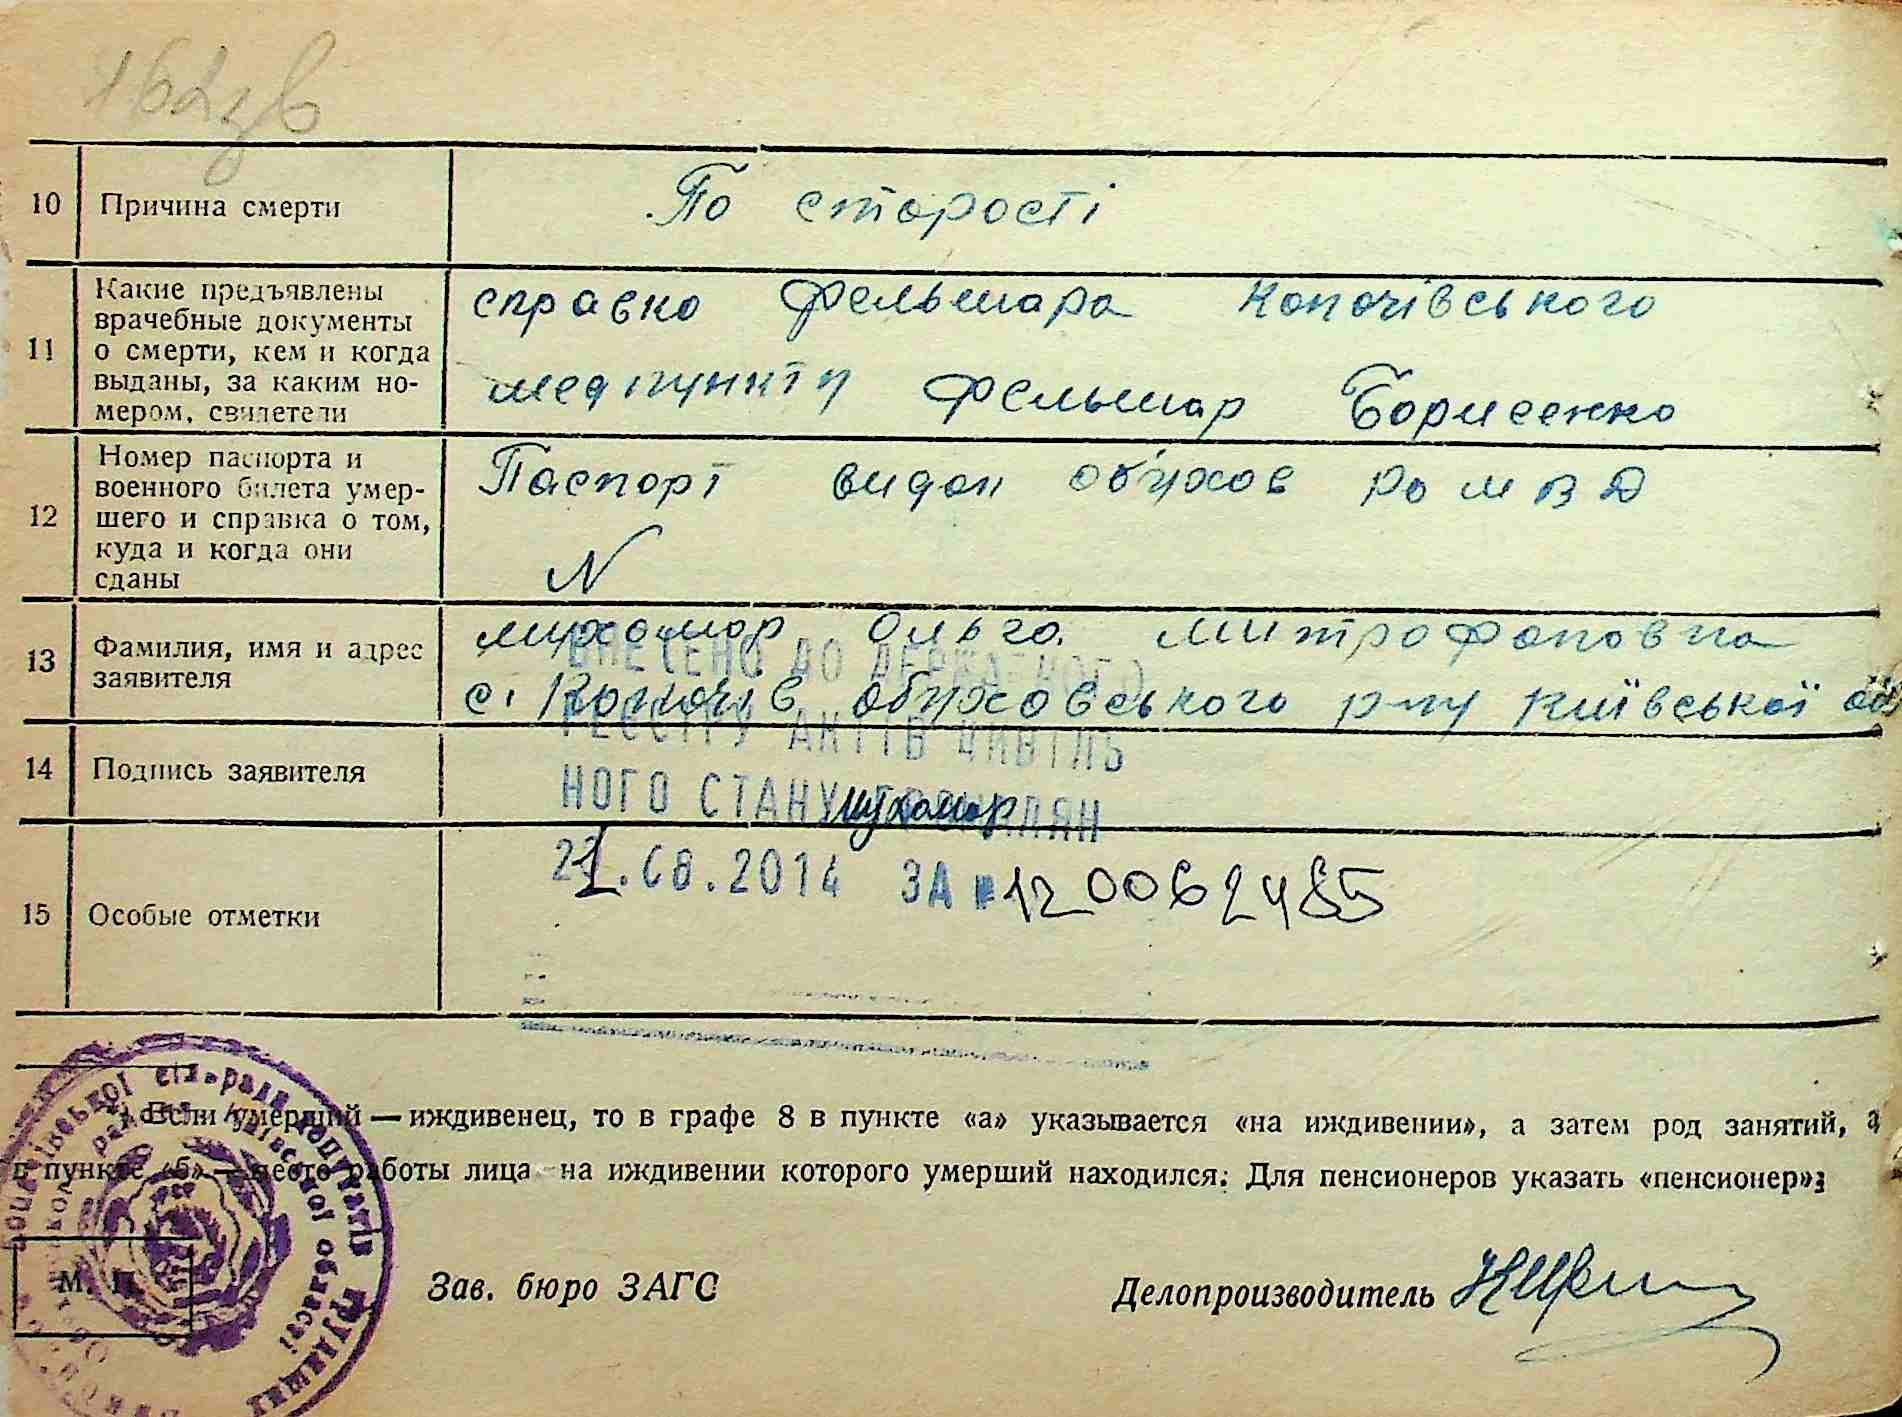 10 Причина смерти
По старості
11 Какие предъявлены
врачебные документы
о смерти, кем и когда
выданы, за каким но-
мером, свидетели
справка фельшара Копачівського
медпункту фельшар Борисенко
12 Номер паспорта и
военного билета умер-
шего и справка о том,
куда и когда они
сданы
Паспорт видан обухов РО МВД
N
13 Фамилия, имя и адрес
заявителя
мухомор Ольга Митрофановна
с. Копачів обуховського р-ну Київської обл
14 Подпись заявителя
мухомор
ВНЕСЕНО ДО ДЕРЖАВНОГО
РЕЄСТРУ АКТІВ ЦИВІЛЬ
НОГО СТАНУ ГРОМАДЯН
21.08.2014 ЗА № 120062485
15 Особые отметки
*) Если умерший — иждивенец, то в графе 8 в пункте «а» указывается «на иждивении», а затем род занятий, а
в пункте «б» — место работы лица на иждивении которого умерший находился. Для пенсионеров указать «пенсионер»;
М. П.
Зав. бюро ЗАГС
Делопроизводитель
Копачівської сіл. ради депутатів трудящих
району Київської області